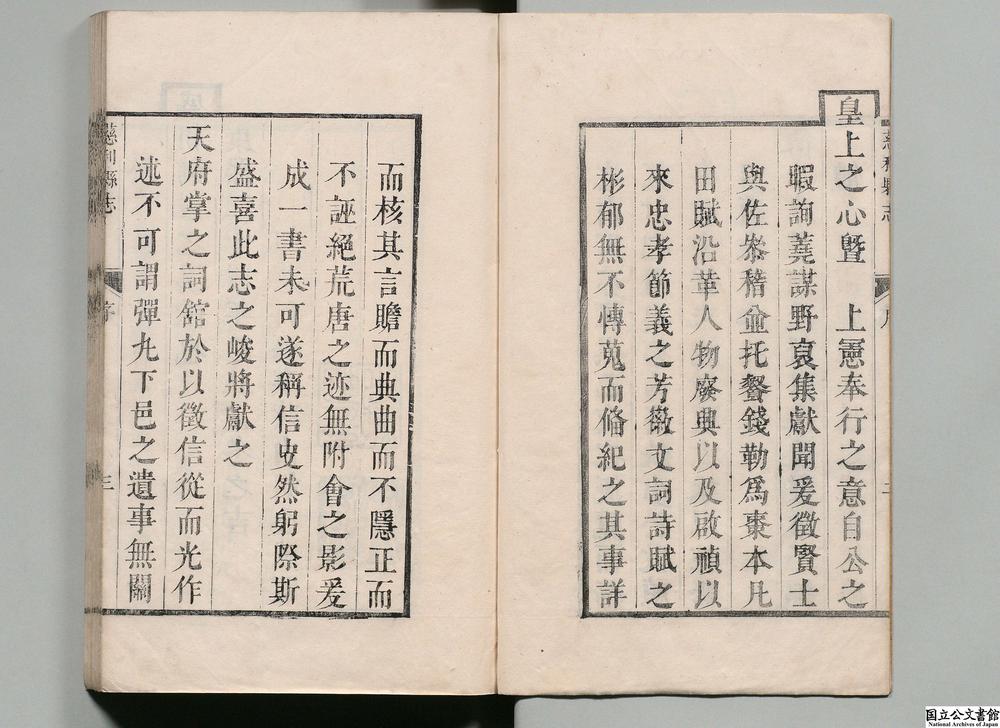 慈利縣志
序
二
皇上之心曁　上憲奉行之意自公之
暇詢蕘謀野裒集獻聞爰徵賢士
與佐叅稽僉托餐錢勒爲棗本凡
田賦沿革人物廢興以及啟禎以
來忠孝節義之芳徽文詞詩賦之
彬郁無不慱蒐而俻紀之其事詳
而核其言贍而典曲而不隱正而
不誣絕荒唐之迹無附會之影爰
成一書未可遂稱信史然躬際斯
盛喜此志之峻將獻之
天府掌之詞舘於以徵信從而光作
述不可謂彈丸下邑之遺事無關
慈利縣志
序
三
国立公文書館
National Archives of Japan